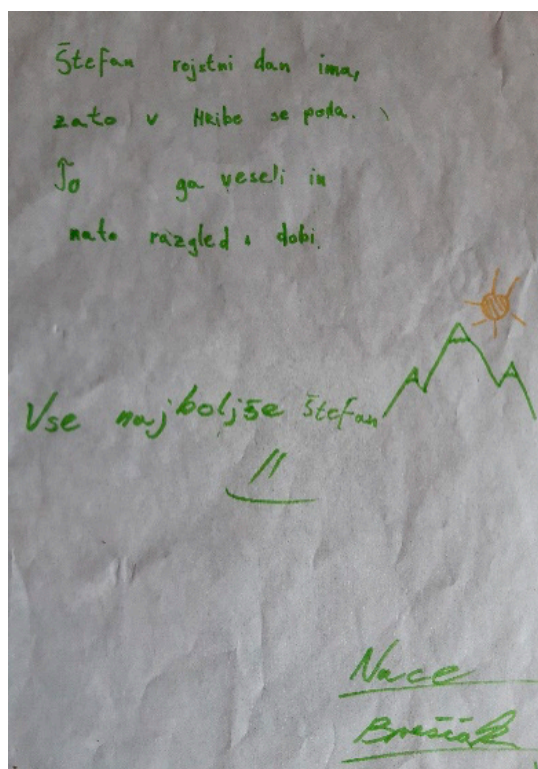 Štefan rojstni dan ima,
zato v Hribe se poda.
To ga veseli in
nato razgled dobi.
Vse najboljše Štefan
Nace
Breščak